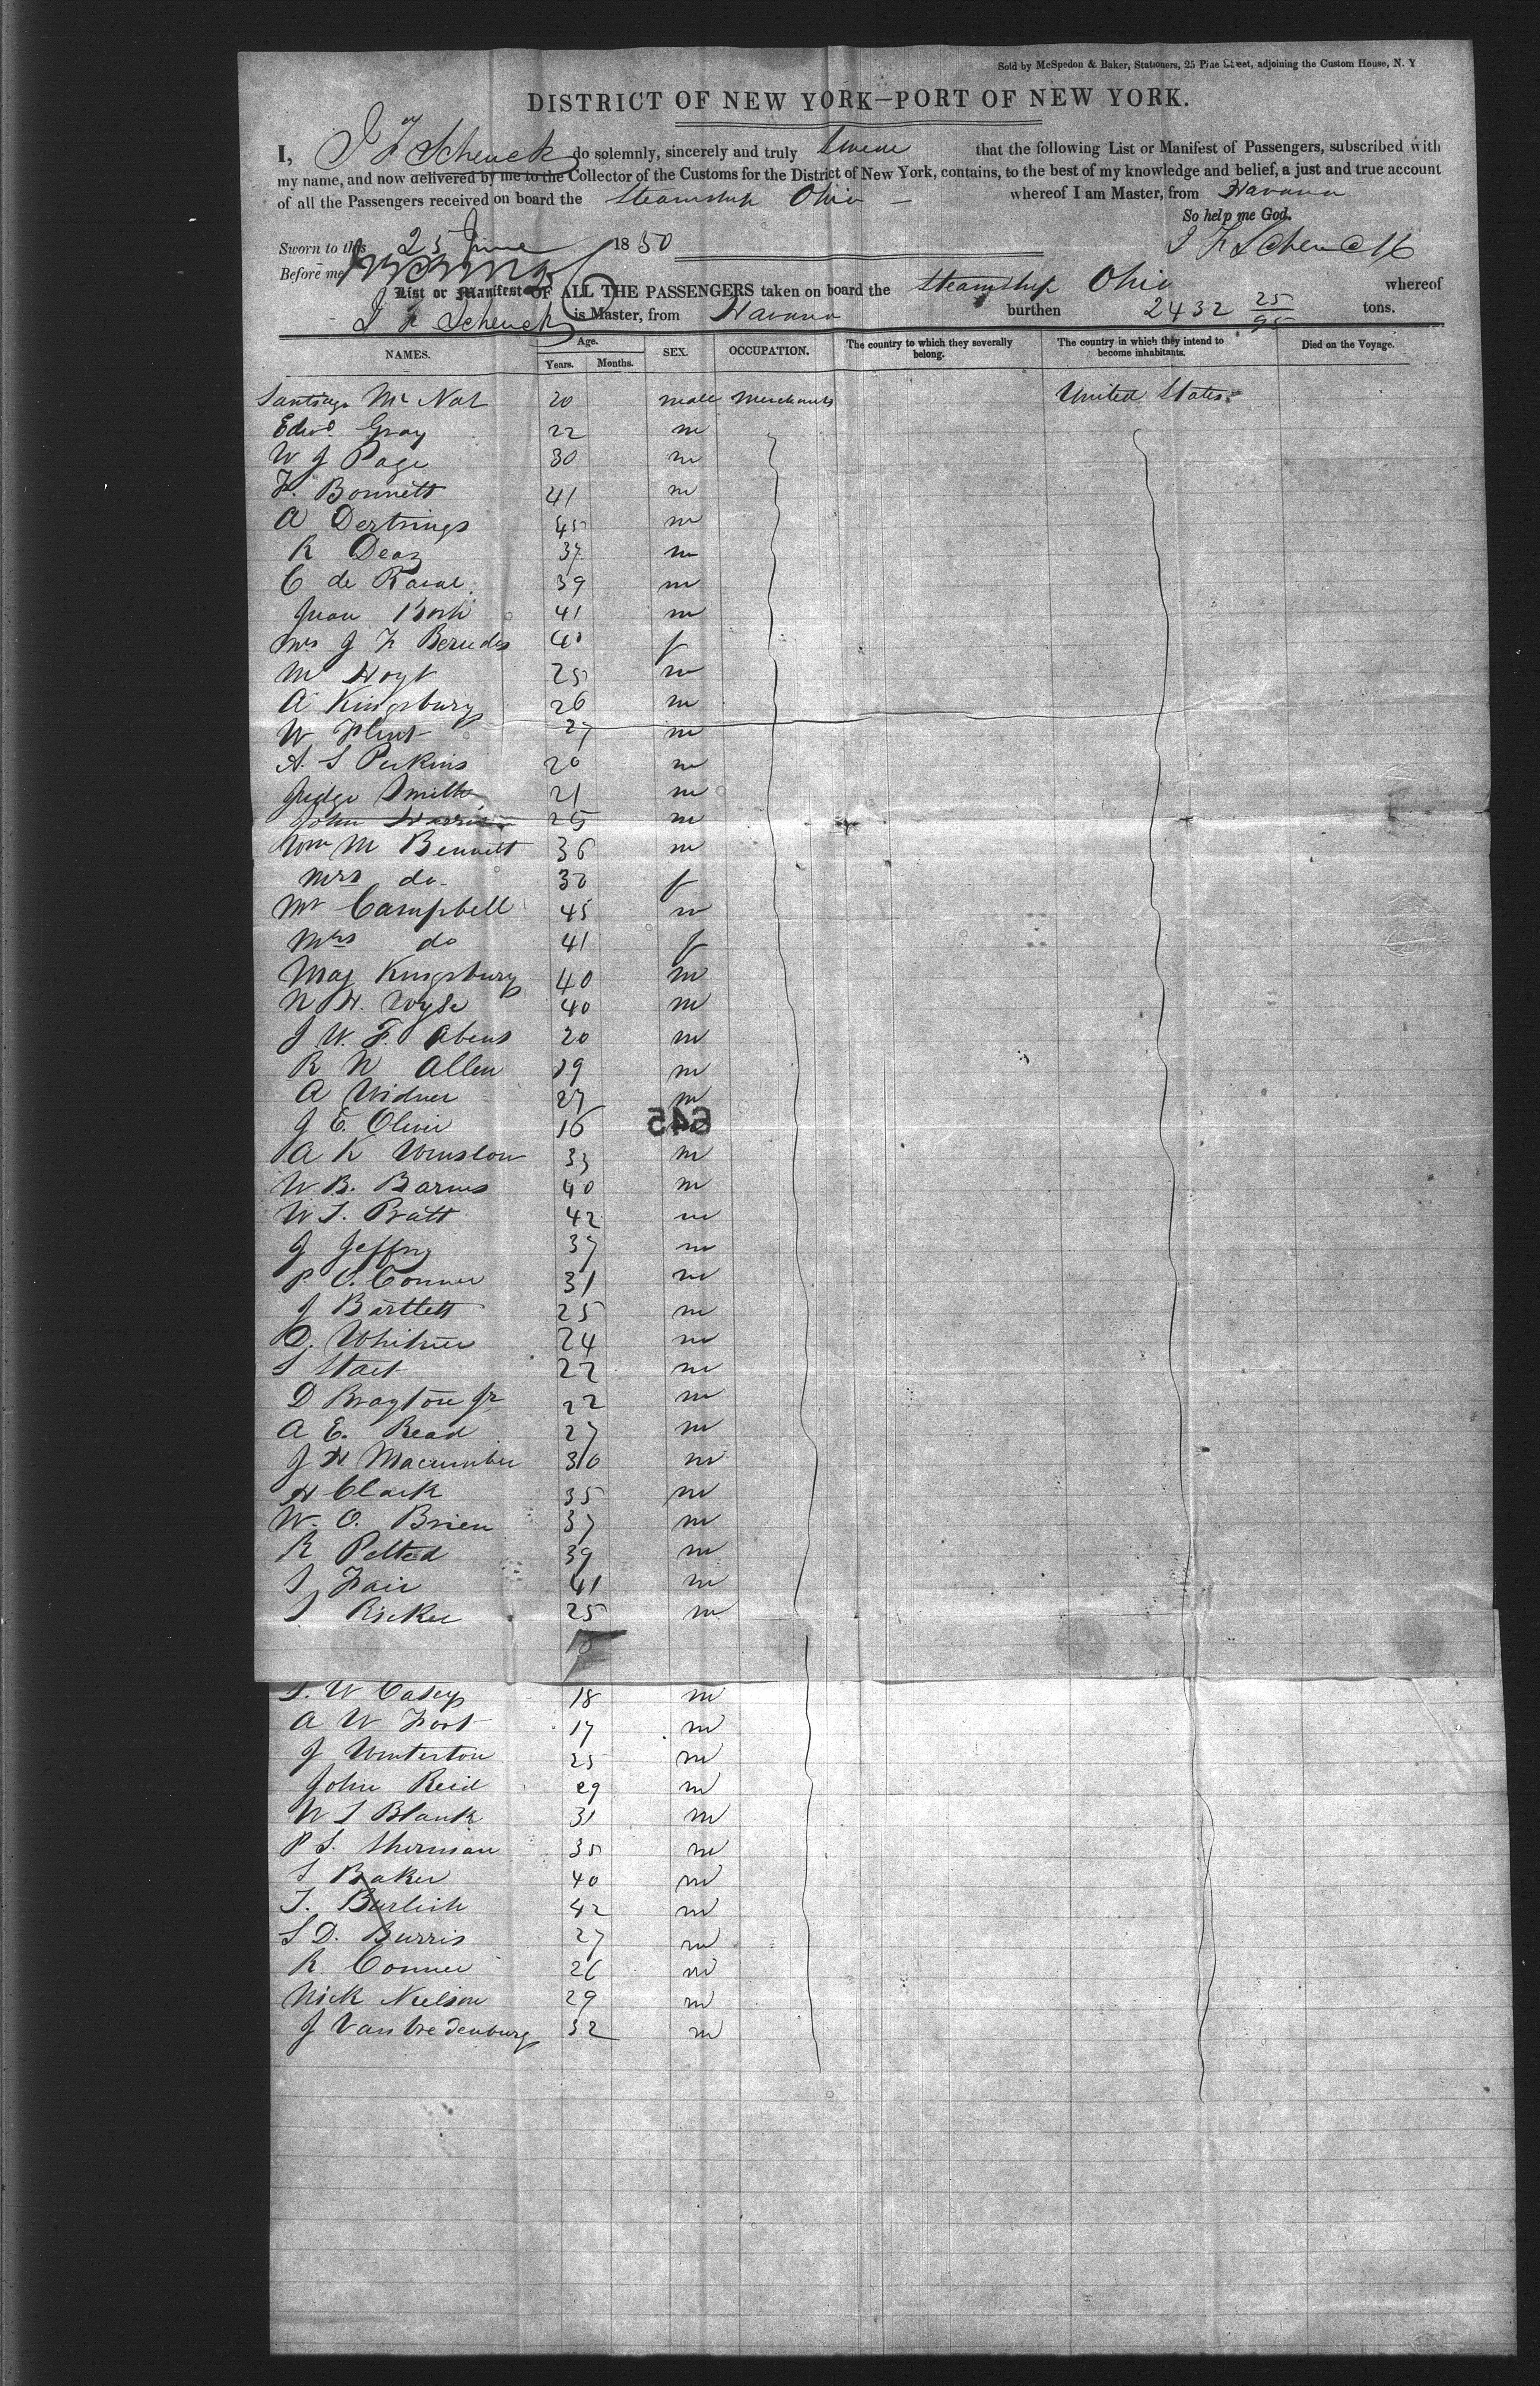 Sold by McSpedon & Baker, Stationers, 25 Pine Street, adjoining the Custom House, N. Y
DISTRICT OF NEW YORK—PORT OF NEW YORK.
I, J F Schenck do solemnly, sincerely and truly swear that the following List or Manifest of Passengers, subscribed with
my name, and now delivered by me to the Collector of the Customs for the District of New York, contains, to the best of my knowledge and belief, a just and true account
of all the Passengers received on board the Steamship Ohio — whereof I am Master, from Havana
So help me God.
Sworn to this 25 June 1850 J F Schenck
Before me
List or Manifest OF ALL THE PASSENGERS taken on board the Steamship Ohio whereof
J F Schenck is Master, from Havana burthen 2432 25/95 tons.
NAMES. Age. Years. Months. SEX. OCCUPATION. The country to which they severally belong. The country in which they intend to become inhabitants. Died on the Voyage.
Santiago 20 male Merchants United States
Edwd Gray 22 m
W J Page 30 m
F. Bonnett 41 m
A 45 m
R Deaz 37 m
C de 39 m
Juan 41 m
Mrs J F 40 f
M Hoyt 25 m
A Kingsbury 26 m
W Flint 27 m
A. S Perkins 20 m
Judge Smith 21 m
John Harris 25 m
Wm M Bennett 36 m
Mrs do 30 f
Mr Campbell 45 m
Mrs do 41 f
Maj Kingsbury 40 m
N H. Wyse 40 m
J. W. F. 20 m
R N Allen 19 m
A Widner 27 m
J E. Oliver 16 645
A K Winslow 33 m
W. B. Barnes 40 m
W S. Pratt 42 m
J Jeffry 37 m
P O. Conner 31 m
J Bartlett 25 m
D. 24 m
S 22 m
D Brayton Jr 22 m
A E. Read 27 m
J H Macumber 30 m
H Clark 35 m
W. O. Brien 37 m
R 39 m
S Fair 41 m
S Ricker 25 m
18
S. W Casey 18 m
A W Foot 17 m
J Winterton 25 m
John Reid 29 m
W S Blank 31 m
P S. Sherman 35 m
S Baker 40 m
T. 42 m
S D. Burris 27 m
R. Conner 26 m
Nick Neilson 29 m
J Van Vredenburg 32 m